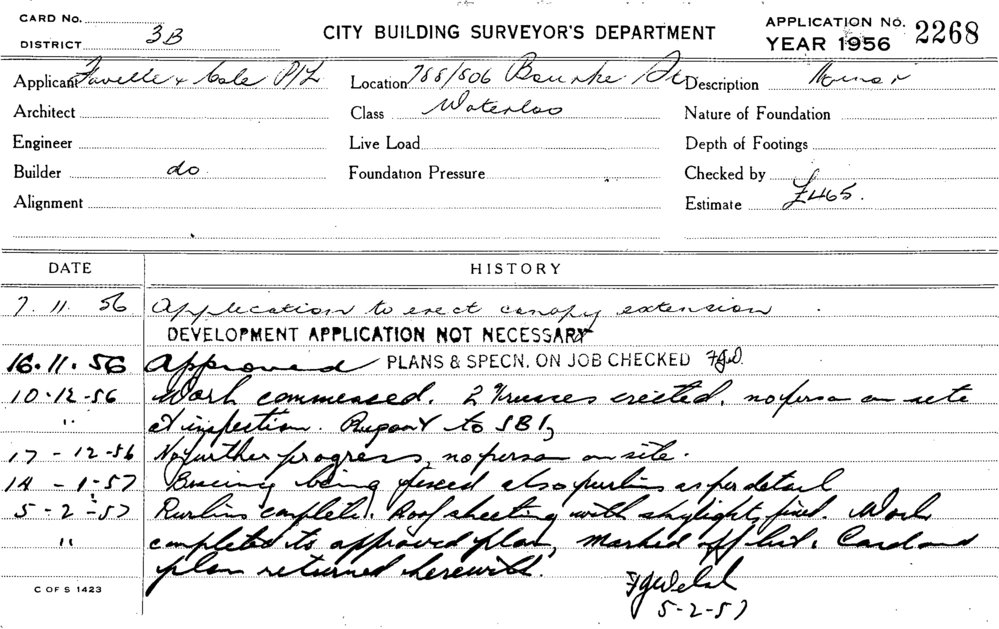 CARD No.
DISTRICT 3B
CITY BUILDING SURVEYOR'S DEPARTMENT
APPLICATION No. 2268
YEAR 1956
Applicant Favelle & Cole P/L
Location 788/806 Bourke St
Description Minor
Architect
Class Waterloo
Nature of Foundation
Engineer
Live Load
Depth of Footings
Builder do
Foundation Pressure
Checked by
Alignment
Estimate £465.
DATE HISTORY
7. 11. 56 Application to erect canopy extension.
DEVELOPMENT APPLICATION NOT NECESSARY
16.11.56 Approved PLANS & SPECN. ON JOB CHECKED
10-12-56 Work commenced. 2 Trusses erected. no person on site
" at inspection. Report to SBI
17-12-56 No further progress, no person on site.
14-1-57 Bracing being fixed also purlins as per detail
5-2-57 Purlins complete. Roof sheeting with skylights fixed. Work
" completed to approved plan, marked off list. Card and
plan returned herewith.
FJWelsh
5-2-57
C OF S 1423